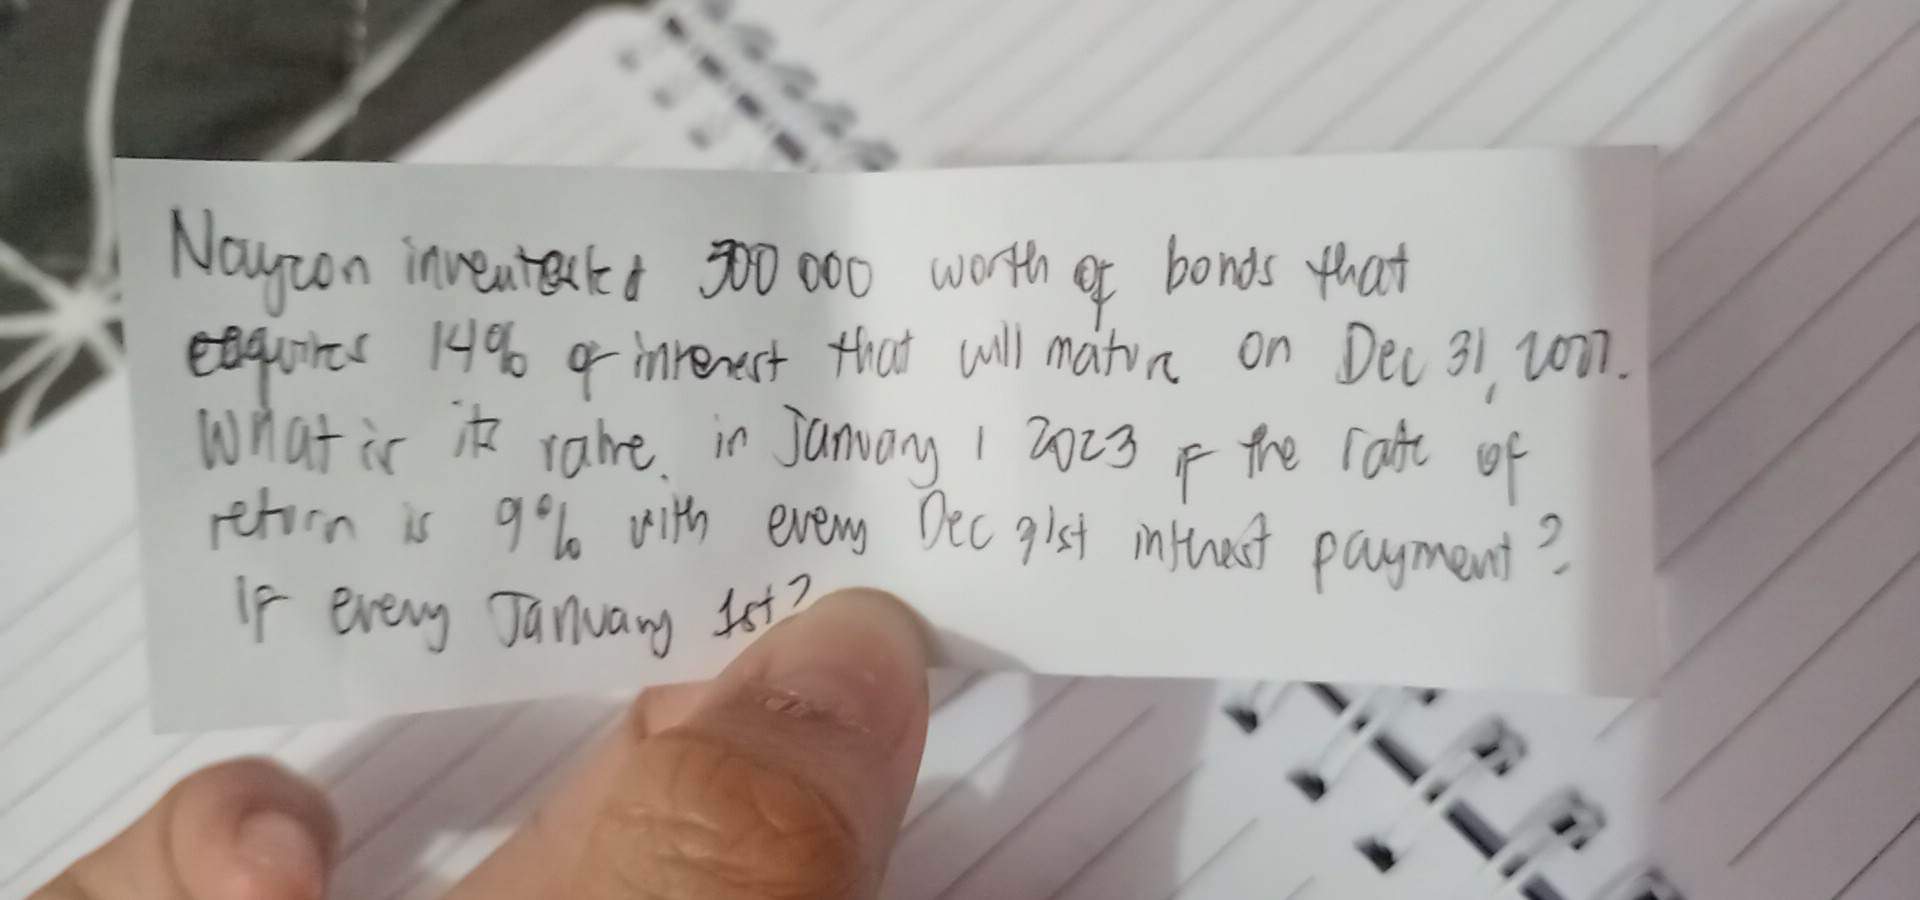 Nayron 500 000 worth of bonds that
14% of interest that will mature on Dec 31,
What is its in January 1 2023 if the rate of
return is 9% with every Dec 31st interest payment?
If every January 1st?